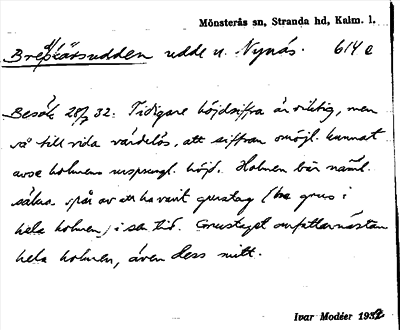 Mönsterås sn, Stranda hd, Kalm. l.
Brepkåsudden udde n. Nynäs. 614 c
Besök 28/7 32. Tidigare höjdsiffra är riktig, men
så till vida värdelös, att siffran omöjl. kunnat
avse holmens ursprungl. höjd. Holmen bär näml.
spår av att ha varit grustag (bra grus i
hela holmen) i sen tid. Grustaget omfattar nästan
hela holmen, även dess mitt.
Ivar Modéer 1932